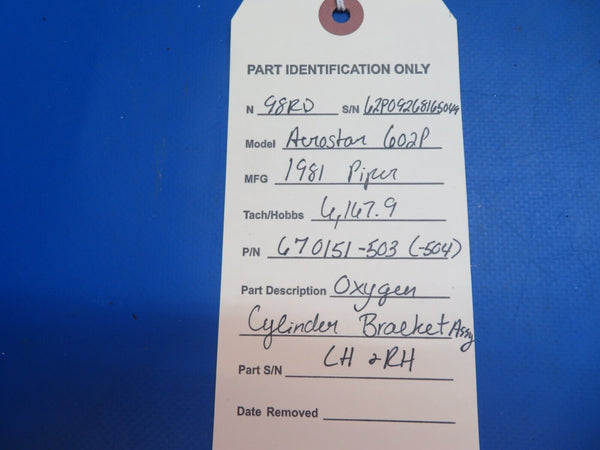 PART IDENTIFICATION ONLY
N 98RD S/N 62P09268165049
Model Aerostar 602P
MFG 1981 Piper
Tach/Hobbs 6,167.9
P/N 670151-503 (-504)
Part Description Oxygen
Cylinder Bracket Assy
LH & RH
Part S/N
Date Removed